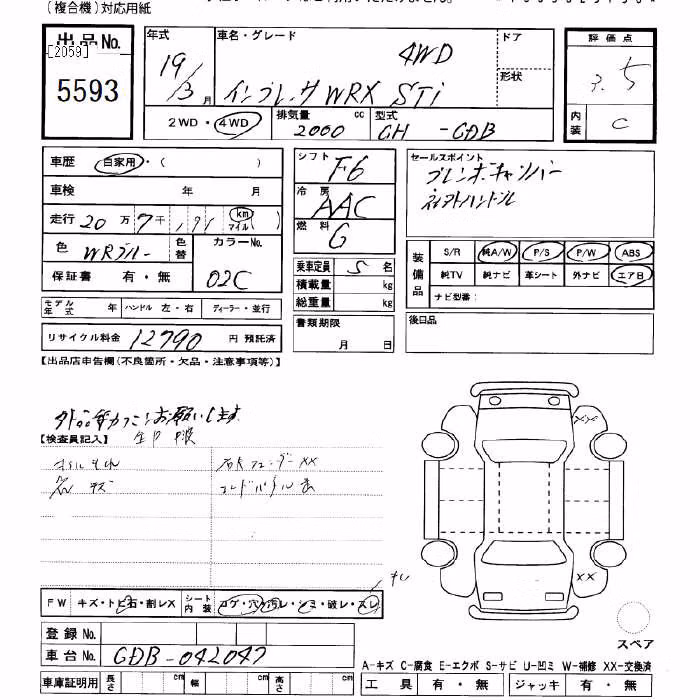 (複合機)対応用紙
出品No. [2059] 5593
年式 19/3月
車名・グレード 4WD インプレッサWRX STi
ドア
形状
評価点 3.5
内装 C
2WD・4WD
排気量 2000 cc
型式 GH-GDB
車歴 自家用・( )
車検 年 月
走行 20万7千,191 km マイル( )
色 WRブルー
色替
カラーNo. 02C
保証書 有・無
シフト F6
冷房 AAC
燃料 G
乗車定員 5名
積載量 kg
総重量 kg
書類期限 月 日
セールスポイント
ブレンボキャリパー
装備品 S/R 純A/W P/S P/W ABS
純TV 純ナビ 革シート 外ナビ エアB
ナビ型番:
後日品
モデル年式 年 ハンドル 左・右 ディーラー・並行
リサイクル料金 12790 円 預託済
【出品店申告欄(不良箇所・欠品・注意事項等)】
お願いします
【検査員記入】
オイルもれ
右Fフェンダー XX
FW キズ・トビ石・割レX
シート内装 コゲ・穴・汚レ・シミ・破レ・スレ
登録No.
車台No. GDB-042047
車庫証明用 長さ cm 幅 cm 高さ cm
XX
XX
スペア
A-キズ C-腐食 E-エクボ S-サビ U-凹ミ W-補修 XX-交換済
工具 有・無 ジャッキ 有・無